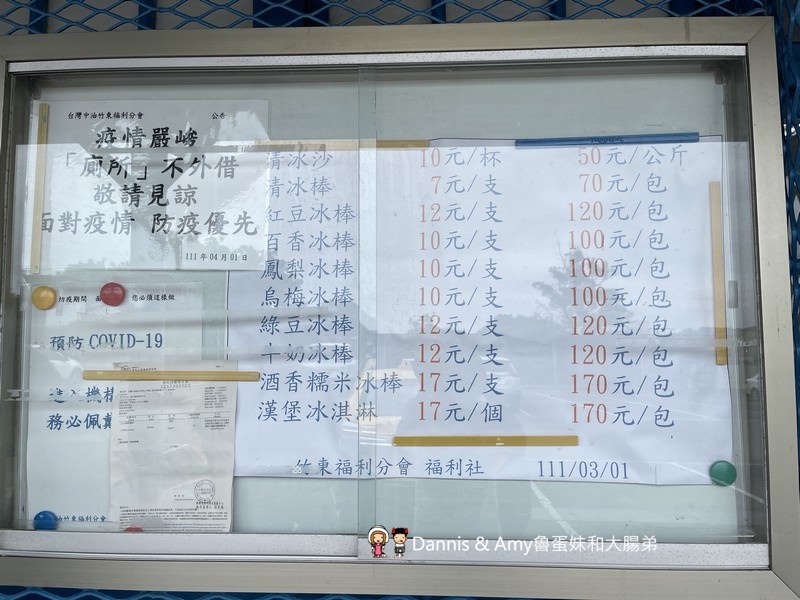 台灣中油竹東福利分會 公告
疫情嚴峻
「廁所」不外借
敬請見諒
面對疫情 防疫優先
111年04月01日
防疫期間 您必須這樣做
預防 COVID-19
進入機構
務必佩戴
油竹東福利分會
清冰沙 10元/杯 50元/公斤
清冰棒 7元/支 70元/包
紅豆冰棒 12元/支 120元/包
百香冰棒 10元/支 100元/包
鳳梨冰棒 10元/支 100元/包
烏梅冰棒 10元/支 100元/包
綠豆冰棒 12元/支 120元/包
牛奶冰棒 12元/支 120元/包
酒香糯米冰棒 17元/支 170元/包
漢堡冰淇淋 17元/個 170元/包
竹東福利分會 福利社 111/03/01
Dannis & Amy魯蛋妹和大腸弟